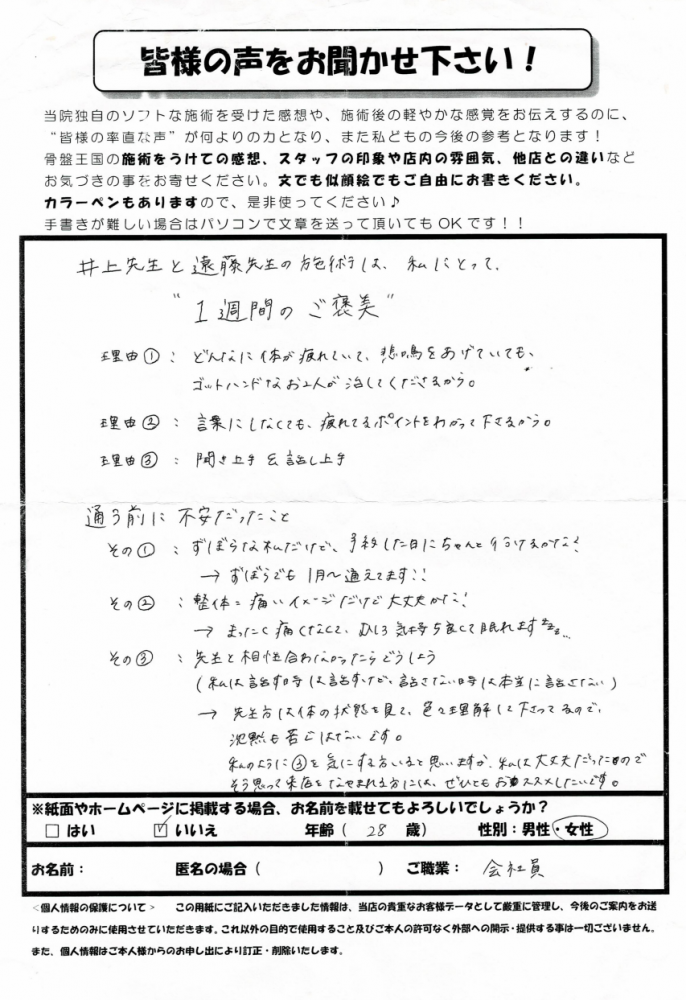 皆様の声をお聞かせ下さい！
当院独自のソフトな施術を受けた感想や、施術後の軽やかな感覚をお伝えするのに、
“皆様の率直な声”が何よりの力となり、また私どもの今後の参考となります！
骨盤王国の施術をうけての感想、スタッフの印象や店内の雰囲気、他店との違いなど
お気づきの事をお寄せください。文でも似顔絵でもご自由にお書きください。
カラーペンもありますので、是非使ってください♪
手書きが難しい場合はパソコンで文章を送って頂いてもOKです！！
井上先生と遠藤先生の施術は、私にとって、
“1週間のご褒美”
理由①：どんなに体が疲れていて、悲鳴をあげていても、
ゴットハンドなお2人が治してくださるから。
理由②：言葉にしなくても、疲れてるポイントをわかって下さるから。
理由③：聞き上手＆話し上手
通う前に不安だったこと
その①：ずぼらな私だけど、予約した日にちゃんと行けるかな！
→ ずぼらでも1月〜通えてます!!
その②：整体＝痛いイメージだけど大丈夫かな！
→ まったく痛くなくて、むしろ気持ち良くて眠れます
その③：先生と相性合わなかったらどうしよう
(私は話す時は話すけど、話さない時は本当に話さない)
→ 先生方は体の状態を見て、色々理解して下さってるので、
沈黙も苦ではないです。
私のように③を気にする方いると思いますが、私は大丈夫だったので
そう思って来店をなやまれる方には、ぜひともおススメしたいです。
※紙面やホームページに掲載する場合、お名前を載せてもよろしいでしょうか？
□ はい ☑ いいえ 年齢（ 28 歳） 性別：男性・女性
お名前： 匿名の場合（ ） ご職業： 会社員
＜個人情報の保護について＞ この用紙にご記入いただきました情報は、当店の貴重なお客様データとして厳重に管理し、今後のご案内をお送
りするためのみに使用させていただきます。これ以外の目的で使用すること及びご本人の許可なく外部への開示・提供する事は一切ございません。
また、個人情報はご本人様からのお申し出により訂正・削除いたします。